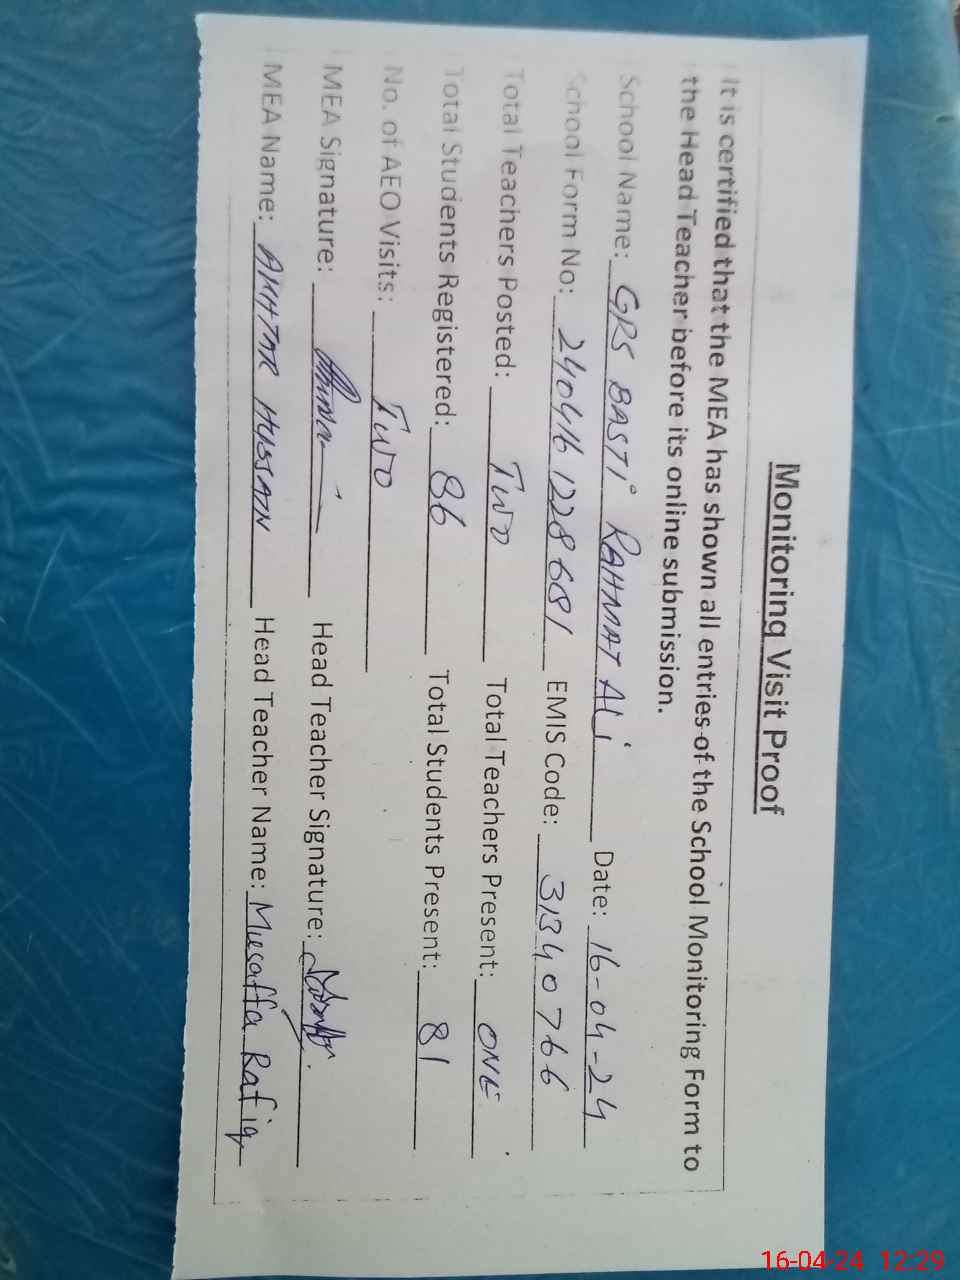 Monitoring Visit Proof
It is certified that the MEA has shown all entries of the School Monitoring Form to
the Head Teacher before its online submission.
School Name: GPS BASTI RAHMAT ALi Date: 16-04-24
School Form No: 2404161228681 EMIS Code: 31340766
Total Teachers Posted: Two Total Teachers Present: ONE
Total Students Registered: 86 Total Students Present: 81
No. of AEO Visits: Two
MEA Signature: Head Teacher Signature:
MEA Name: AKHTAR HUSSAIN Head Teacher Name: Musaffa Rafiq
16-04-24 12:29